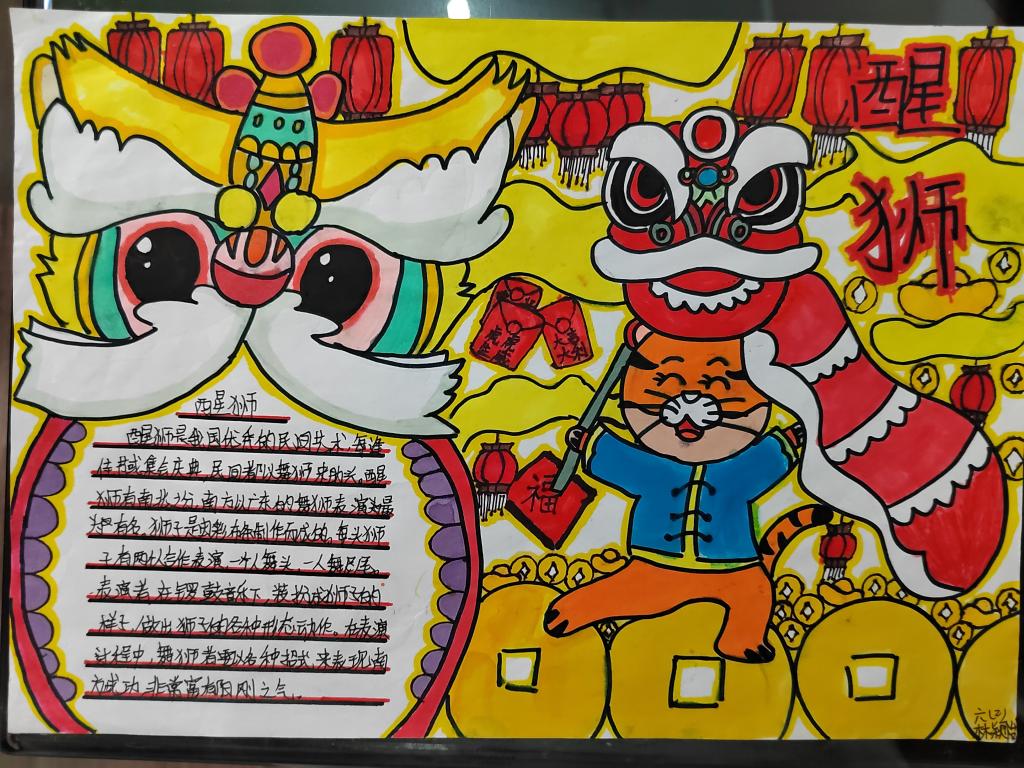 醒
狮
虎年
虎虎
生威
大吉
大利
福
醒狮
醒狮是我国优秀的民间艺术,每逢
佳节或集会庆典,民间都以舞狮来助兴,醒
狮有南北之分,南方以广东的舞狮表演最
为有名。狮子是由彩布条制作而成的,每头狮
子有两个人合作表演,一个人舞头,一人舞尾。
表演者在锣鼓音乐下,装扮成狮子的
样子,做出狮子的各种形态动作。在表演
过程中,舞狮者要以各种招式来表现南
功,非常富有阳刚之气。
六(2)
林颖